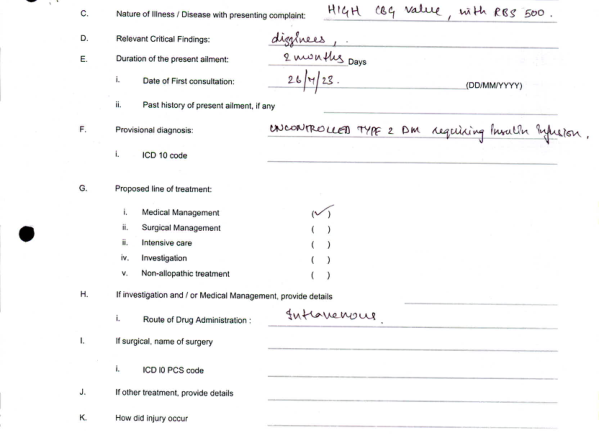 C. Nature of Illness / Disease with presenting complaint: HIGH CBG value, with RBS 500.
D. Relevant Critical Findings: dizziness, .
E. Duration of the present ailment: 2 months Days
i. Date of First consultation: 26/7/23. (DD/MM/YYYY)
ii. Past history of present ailment, if any
F. Provisional diagnosis: UNCONTROLLED TYPE 2 DM requiring Insulin Infusion.
i. ICD 10 code
G. Proposed line of treatment:
i. Medical Management (✓)
ii. Surgical Management ( )
ii. Intensive care ( )
iv. Investigation ( )
v. Non-allopathic treatment ( )
H. If investigation and / or Medical Management, provide details
i. Route of Drug Administration : Intravenous.
I. If surgical, name of surgery
i. ICD I0 PCS code
J. If other treatment, provide details
K. How did injury occur